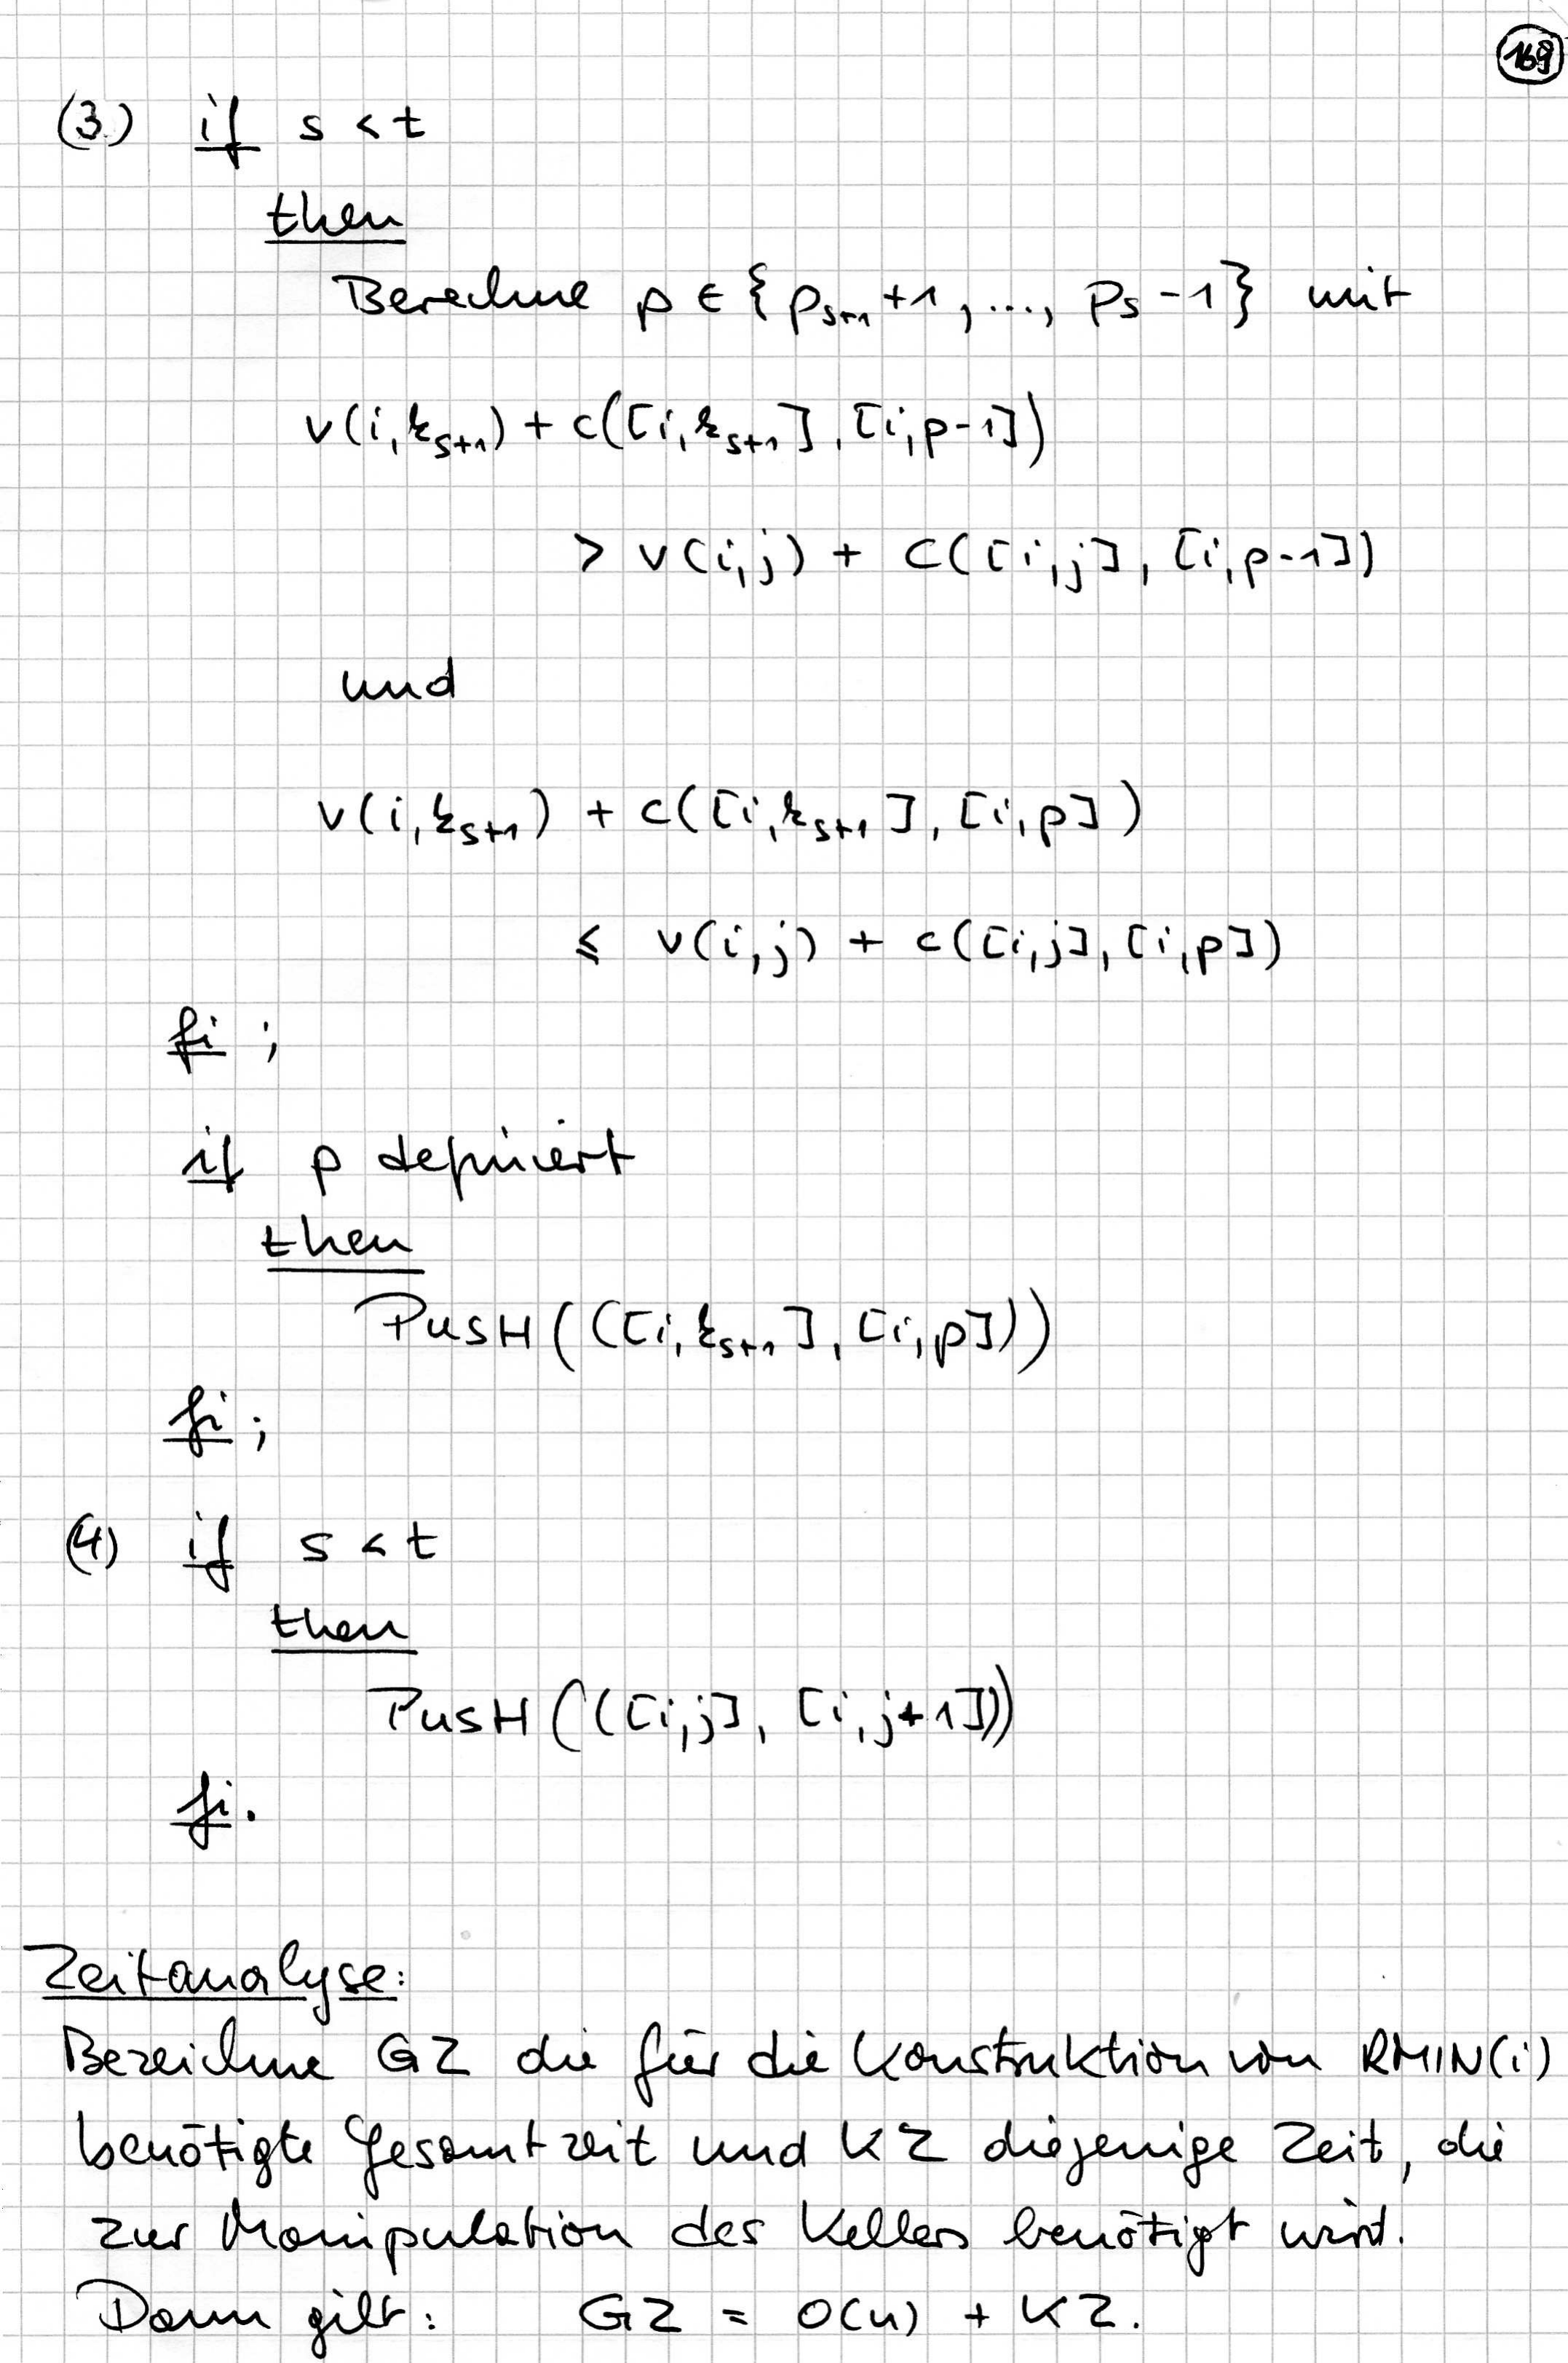 169
(3) if s < t
then
Berechne p ∈ {p_{s+1}+1, ..., p_s-1} mit
v(i,k_{s+1}) + c([i,k_{s+1}], [i,p-1])
> v(i,j) + c([i,j], [i,p-1])
und
v(i,k_{s+1}) + c([i,k_{s+1}], [i,p])
≤ v(i,j) + c([i,j], [i,p])
fi ;
if p definiert
then
PUSH(([i,k_{s+1}], [i,p]))
fi ;
(4) if s < t
then
PUSH(([i,j], [i,j+1]))
fi.
Zeitanalyse:
Bezeichne GZ die für die Konstruktion von RMIN(i)
benötigte Gesamtzeit und KZ diejenige Zeit, die
zur Manipulation des Kellers benötigt wird.
Dann gilt: GZ = O(n) + KZ.